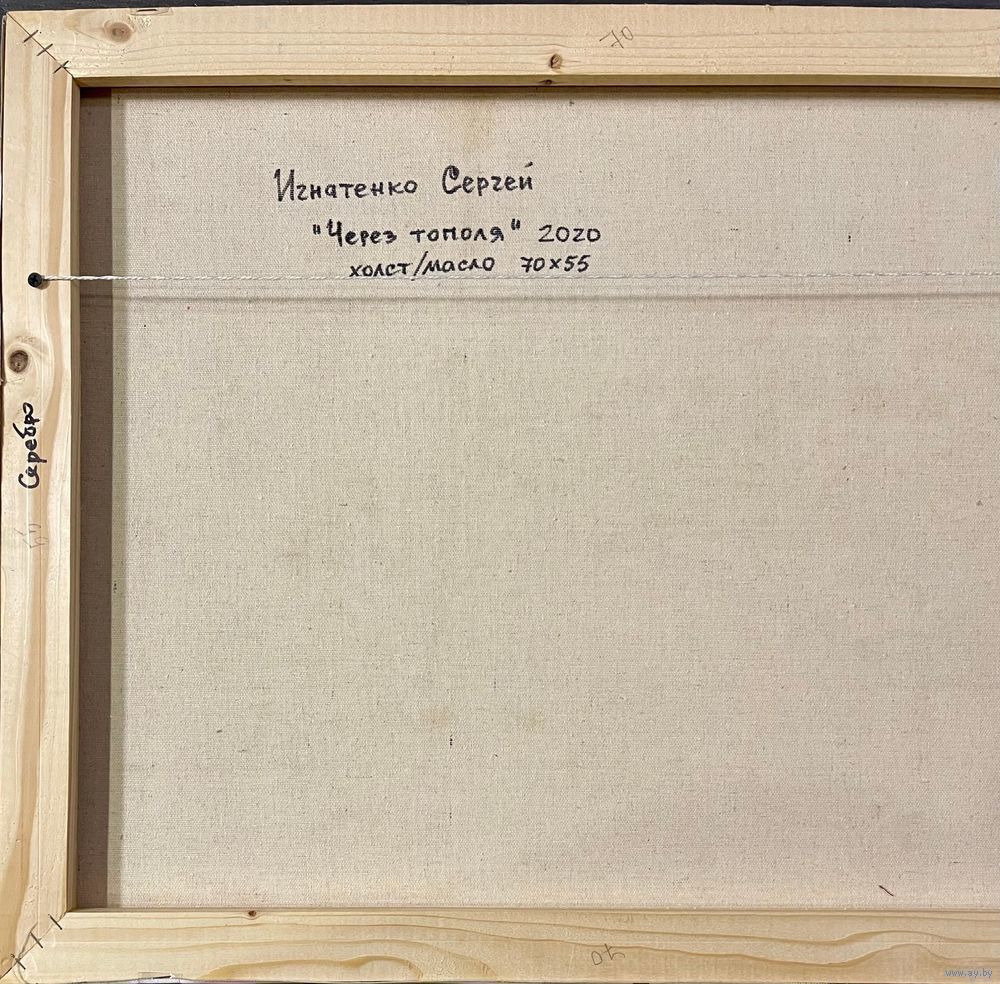 70
Игнатенко Сергей
"Через тополя" 2020
холст/масло 70х55
Серебро
70
www.ay.by